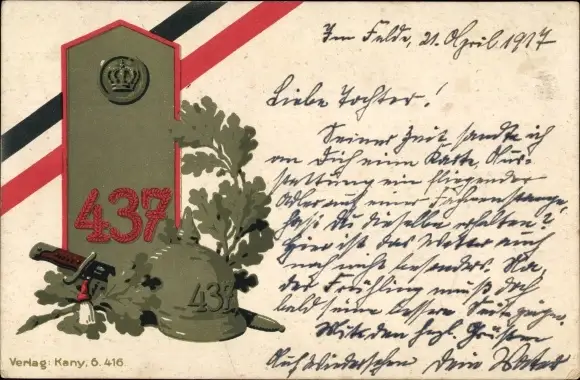 Im Felde, 21. April 1917
Liebe Tochter!
Seiner Zeit sandte ich
an Dich eine Karte,
ein fliegender
Adler auf einer Fahnenstange
hast Du dieselbe erhalten?
Hier ist das Wetter auch
noch nicht besonders. Na,
der Frühling muß doch
bald seine bessere Seite zeigen.
Mit den herzl. Grüßen
Auf Wiedersehen Dein Vater
437
437
Verlag: Kany, 6. 416.